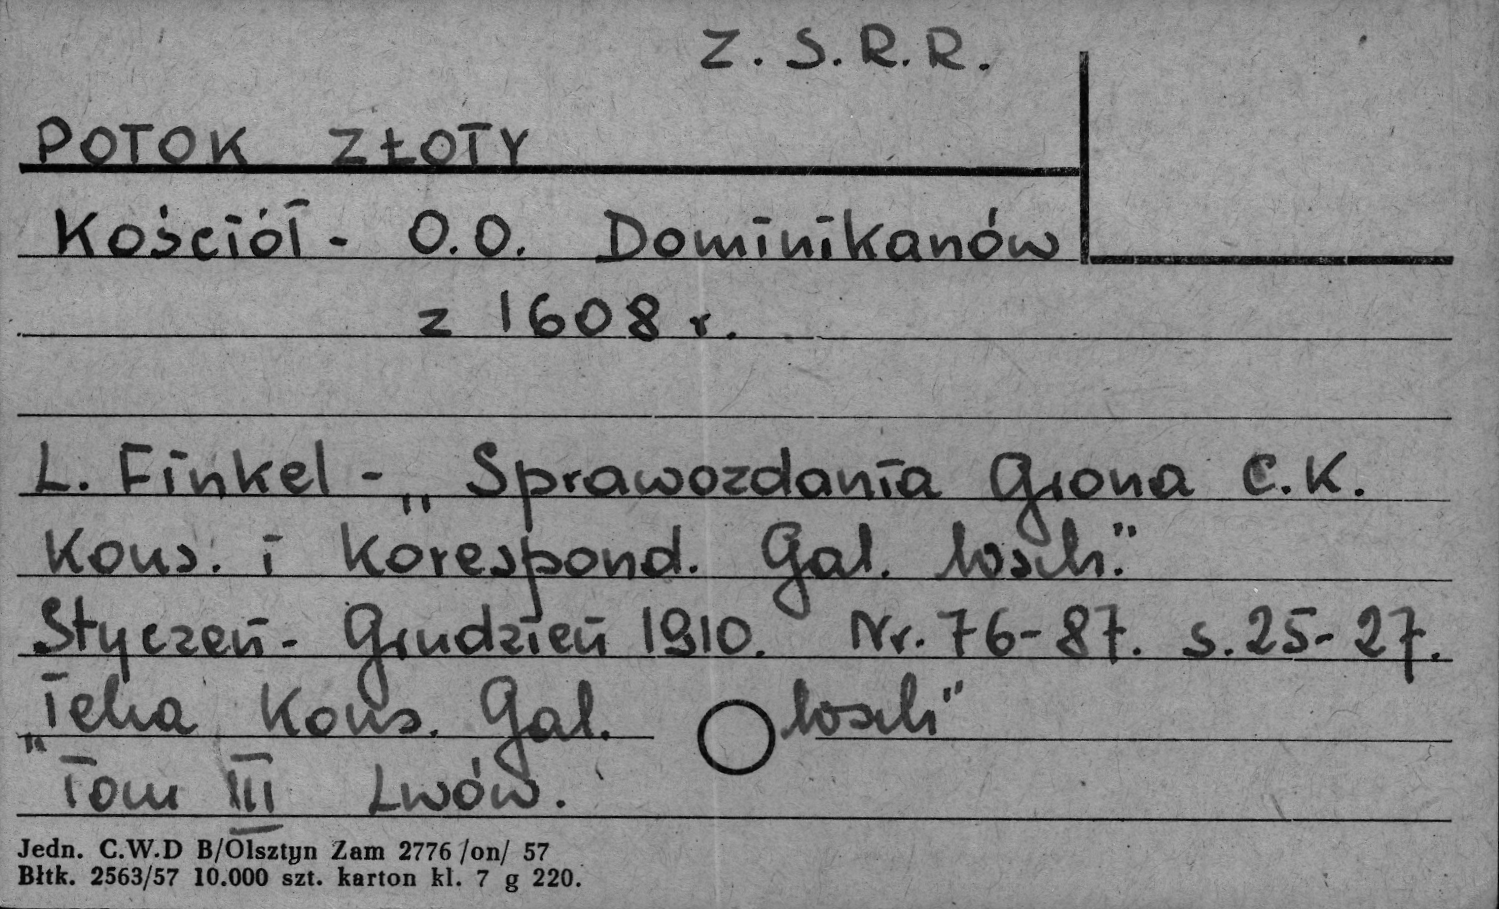 Z.S.R.R.
POTOK ZŁOTY
Kościół - O.O. Dominikanów
z 1608 r.
L. Finkel - „Sprawozdania Grona C.K.
Kons. i Korespond. Gal. wsch."
Styczeń - Grudzień 1910. Nr. 76-87. s. 25-27.
„Teka Kons. Gal. wsch"
Tom III Lwów.
Jedn. C.W.D B/Olsztyn Zam 2776 /on/ 57
Błtk. 2563/57 10.000 szt. karton kl. 7 g 220.